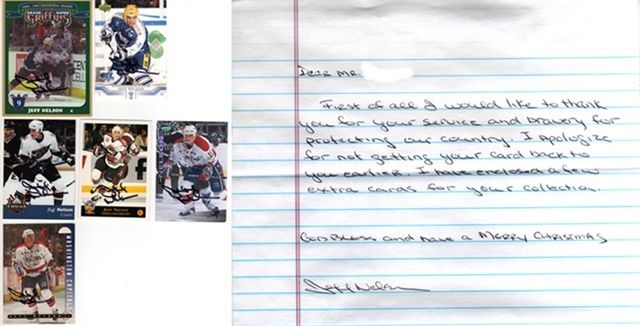 GRAND RAPIDS
Griffins
9 JEFF NELSON
Jeff Nelson
Center
JEFF NELSON
WASHINGTON CAPITALS
Dear Mr
First of all I would like to thank
you for your service and bravery for
protecting our country. I apologize
for not getting your card back to
you earlier. I have enclosed a few
extra cards for your collection.
God Bless and have a Merry Christmas
Jeff Nelson